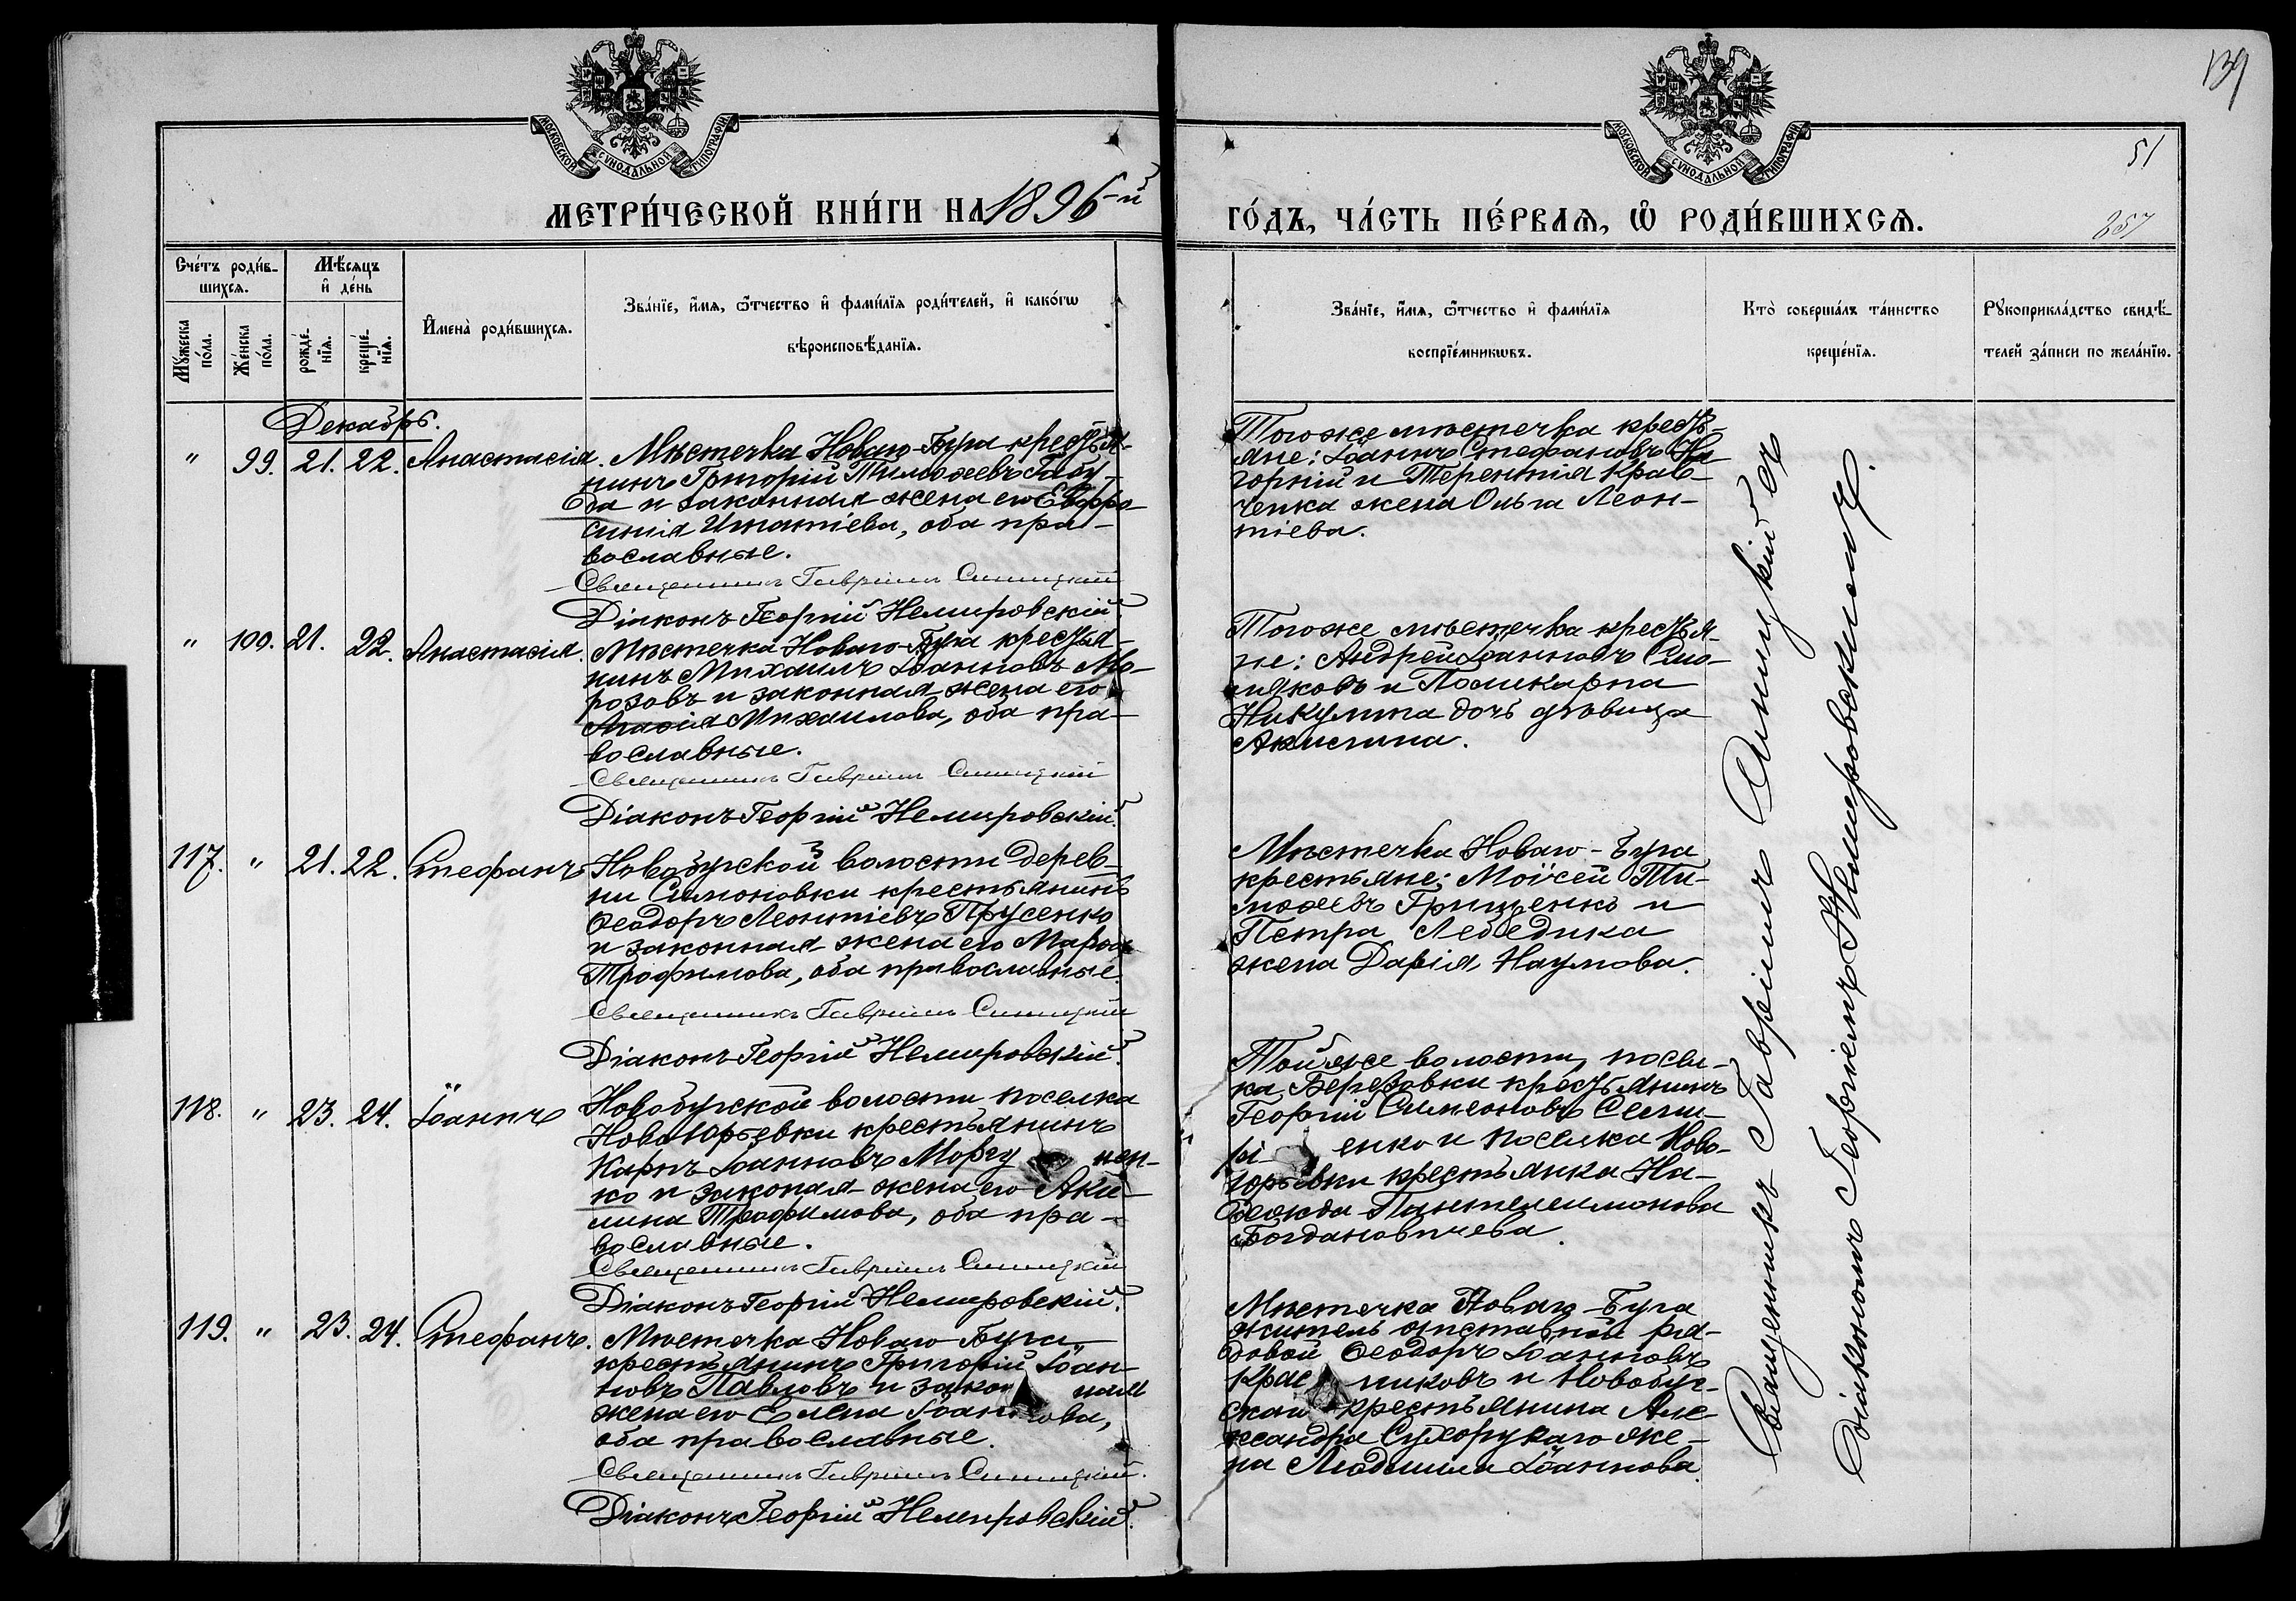 139
51
257
МОСКОВСКОЙ СѴНОДАЛЬНОЙ ТИПОГРАФІИ
МОСКОВСКОЙ СѴНОДАЛЬНОЙ ТИПОГРАФІИ
МЕТРИ́ЧЕСКОЙ КНИ́ГИ НА 1896-й
ГО́ДЪ, ЧА́СТЬ ПЕ́РВАѦ, Ѡ҆ РОДИ́ВШИХСѦ.
Сче́тъ роди́в-
шихсѧ.
Мѣ́сѧцъ
и҆ де́нь
Мꙋжеска по́ла.
Же́нска по́ла.
рожде́-
нїѧ.
креще́-
нїѧ.
И҆мена̀ роди́вшихсѧ.
Зва́нїе, и҆́мѧ, ѻ҆́тчество и҆ фами́лїѧ роди́телей, и҆ како́гѡ
вѣроисповѣ́данїѧ.
Зва́нїе, и҆́мѧ, ѻ҆́тчество и҆ фами́лїѧ
воспрїе́мникѡвъ.
Кто̀ соверша́лъ та́инство
креще́нїѧ.
Рꙋкоприкла́дство свидѣ́-
телей за́писи по жела́нїю.
Декабрь.
" 99. 21. 22. Анастасія.
Мѣстечка Новаго-Буга крестья-
нинъ Григорій Тимоѳеевъ
да и законная жена его Евфро-
синія Игнатіева, оба пра-
вославные.
Священникъ Гавріилъ Синицкій
Діаконъ Георгій Немировскій.
Того же мѣстечка кресть-
яне: Іоаннъ Стефановъ На-
горній и Терентія Крав-
ченка жена Ольга Леон-
тіева.
" 100. 21. 22. Анастасія.
Мѣстечка Новаго-Буга крестья-
нинъ Михаилъ Іоанновъ Мо-
розовъ и законная жена его
Агафія Михаилова, оба пра-
вославные.
Священникъ Гавріилъ Синицкій
Діаконъ Георгій Немировскій.
Того же мѣстечка крестья-
не: Андрей Іоанновъ
и Поликарпа
Никулина дочь дѣвица
Акилина.
117. " 21. 22. Стефанъ
Новобугской волости дерев-
ни Симоновки крестьянинъ
Ѳеодоръ Леонтіевъ Прусенко
и законная жена его Марѳа
Трофимова, оба православные.
Священникъ Гавріилъ Синицкій
Діаконъ Георгій Немировскій.
Мѣстечка Новаго-Буга
крестьяне: Моѵсей Ти-
моѳеевъ Грищенко и
Петра Лебедика
жена Дарія Наумова.
118. " 23. 24. Іоаннъ
Новобугской волости поселка
Ново Юрьевки крестьянинъ
Карпъ Іоанновъ
ко и законая жена его Аки-
лина Трофимова, оба пра-
вославные.
Священникъ Гавріилъ Синицкій
Діаконъ Георгій Немировскій.
Той же волости, посел-
ка Березовки крестьянинъ
Георгій Симеоновъ
енко и поселка Ново-
юрьевки крестьянка На-
дежда Пантелеимонова
Богдановичева.
119. " 23. 24. Стефанъ.
Мѣстечка Новаго Буга
крестьянинъ Григорій Іоан-
новъ Павловъ и закон ная
жена его Елена Іоаннова,
оба православные.
Священникъ Гавріилъ Синицкій.
Діаконъ Георгій Немировскій.
Мѣстечка Новаго-Буга
житель отставной ря-
довой Ѳеодоръ Іоанновъ
Крас никовъ и Новобуг-
ской крестьянина Але-
ксандра Сухорукаго же-
на Людмила Іоаннова.
Священникъ Гавріилъ Синицкій съ
діакономъ Георгіемъ Немировскимъ.